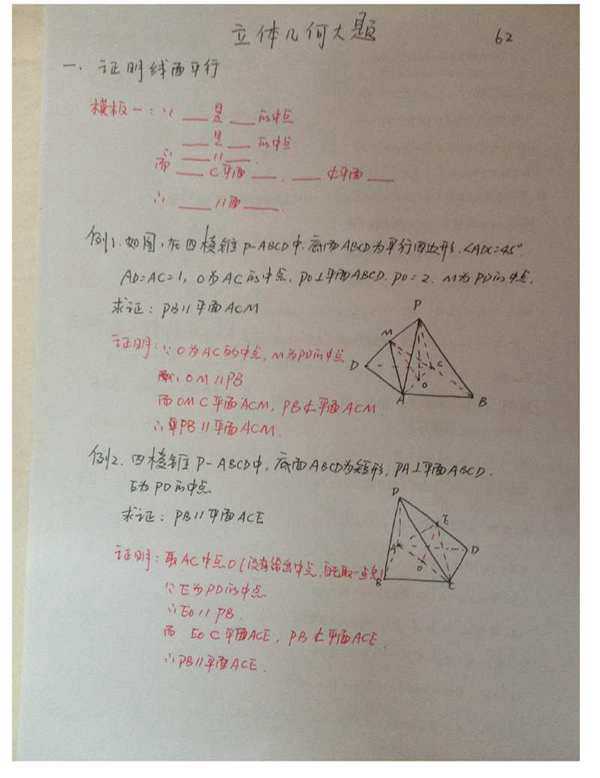 立体几何大题 62
一、证明线面平行
模板一:∵ ___ 是 ___ 的中点
___ 是 ___ 的中点
∴ ___ // ___.
而 ___ ⊂平面 ___ , ___ ⊄平面 ___
∴ ___ //面 ___.
例1.如图,在四棱锥P-ABCD中,底面ABCD为平行四边形,∠ADC=45°
AD=AC=1, O为AC的中点, PO⊥平面ABCD, PO=2, M为PD的中点,
求证: PB//平面ACM
证明:∵O为AC的中点, M为PD的中点
∴OM//PB
而OM⊂平面ACM, PB⊄平面ACM
∴PB//平面ACM.
P
M
D
C
O
A
B
例2. 四棱锥P-ABCD中, 底面ABCD为矩形, PA⊥平面ABCD.
E为PD的中点
求证: PB//平面ACE
证明:取AC中点O(没有给出中点,自己取一点先)
∵E为PD的中点
∴EO//PB.
而 EO⊂平面ACE, PB⊄平面ACE
∴PB//平面ACE.
P
E
A
D
O
B
C